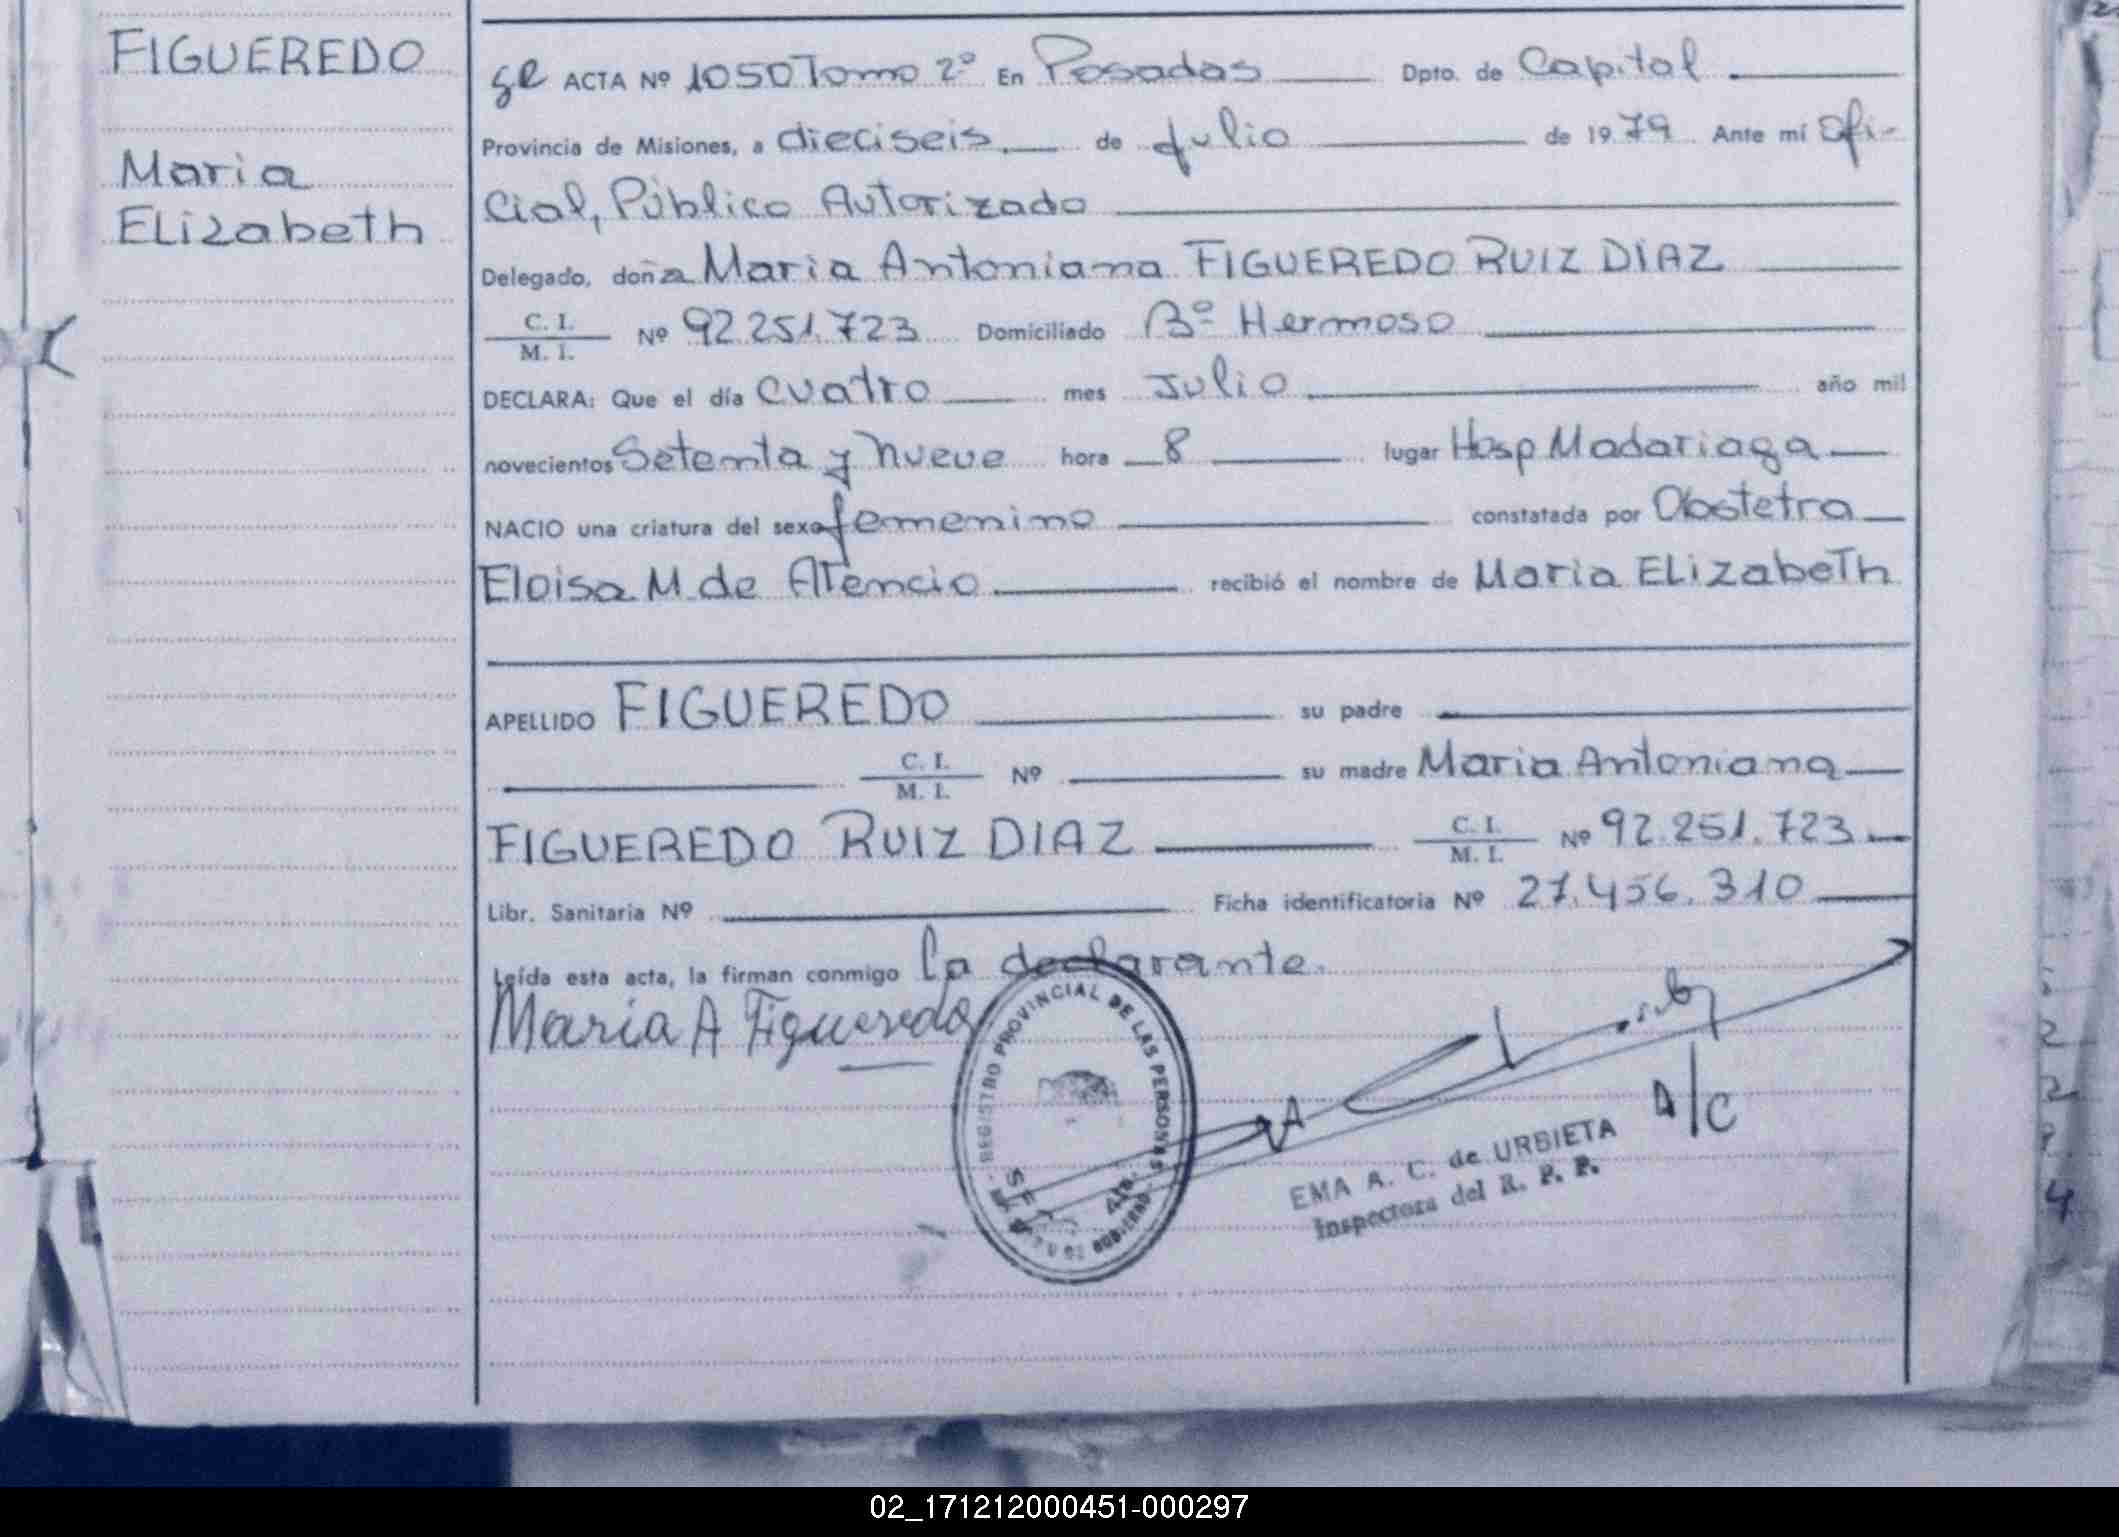 FIGUEREDO
Maria
ELizabeth
ACTA Nº 1050 Tomo 2º En Posadas Dpto. de Capital
Provincia de Misiones, a dieciseis de Julio de 1979 Ante mí Ofi-
cial, Público Autorizado
Delegado, doña Maria Antoniana FIGUEREDO RUIZ DIAZ
C. I.
M. I.
Nº 92.251.723 Domiciliado Bº Hermoso
DECLARA: Que el día cuatro mes Julio año mil
novecientos Setenta y nueve hora 8 lugar Hosp Madariaga
NACIO una criatura del sexo femenino constatada por Obstetra
Eloisa M de Atencio recibió el nombre de Maria ELizabeth
APELLIDO FIGUEREDO su padre
C. I.
M. I.
Nº su madre Maria Antoniana
FIGUEREDO RUIZ DIAZ
C. I.
M. I.
Nº 92.251.723
Libr. Sanitaria Nº Ficha identificatoria Nº 27.456.310
Leída esta acta, la firman conmigo la declarante.
Maria A Figueredo
REGISTRO PROVINCIAL DE LAS PERSONAS
A/C
EMA A. C. de URBIETA
Inspectora del R. P. P.
02_171212000451-000297